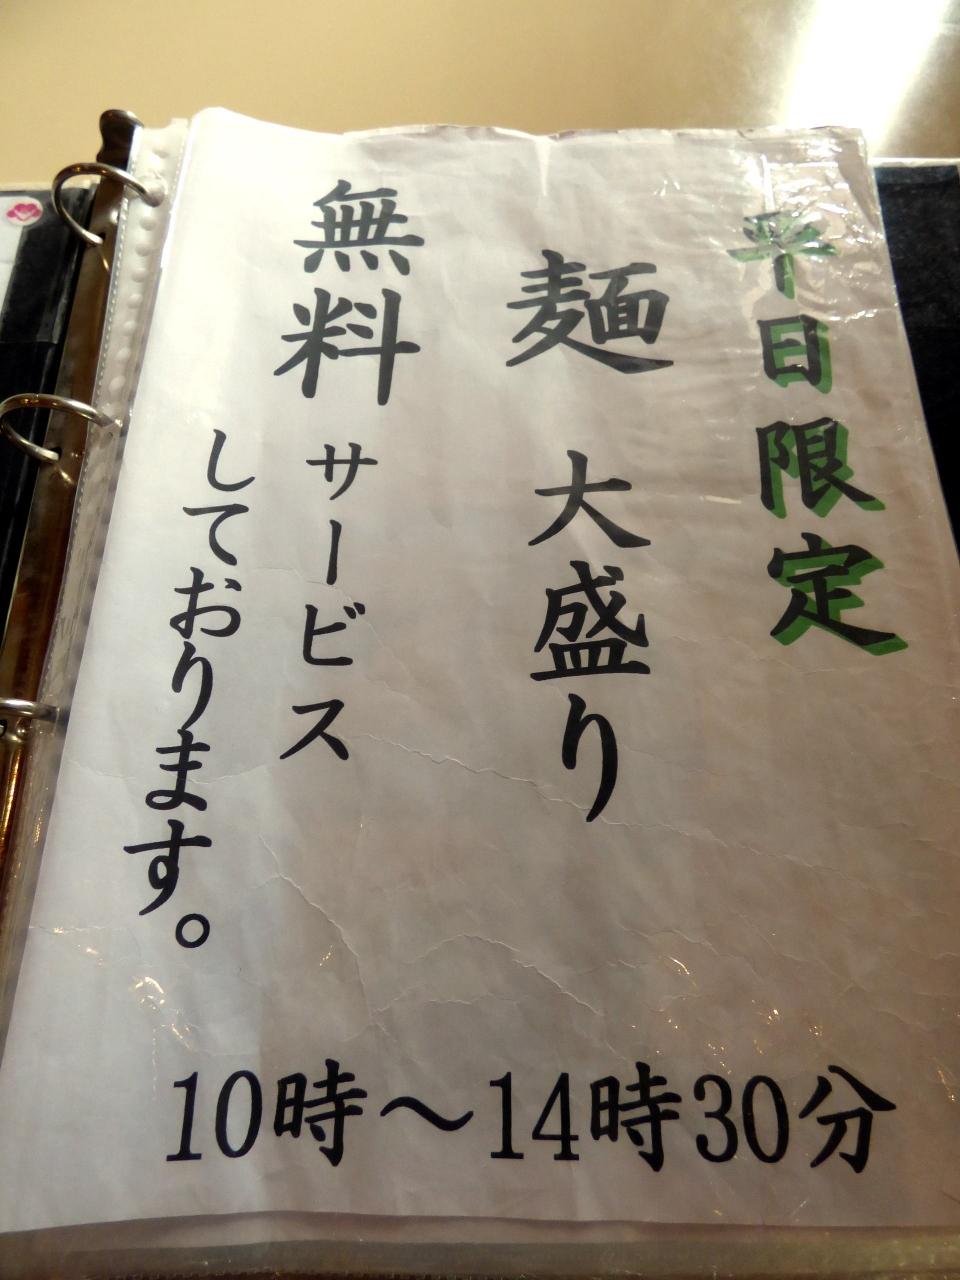 平日限定
麺 大盛り
無料 サービス
しております。
10時～14時30分